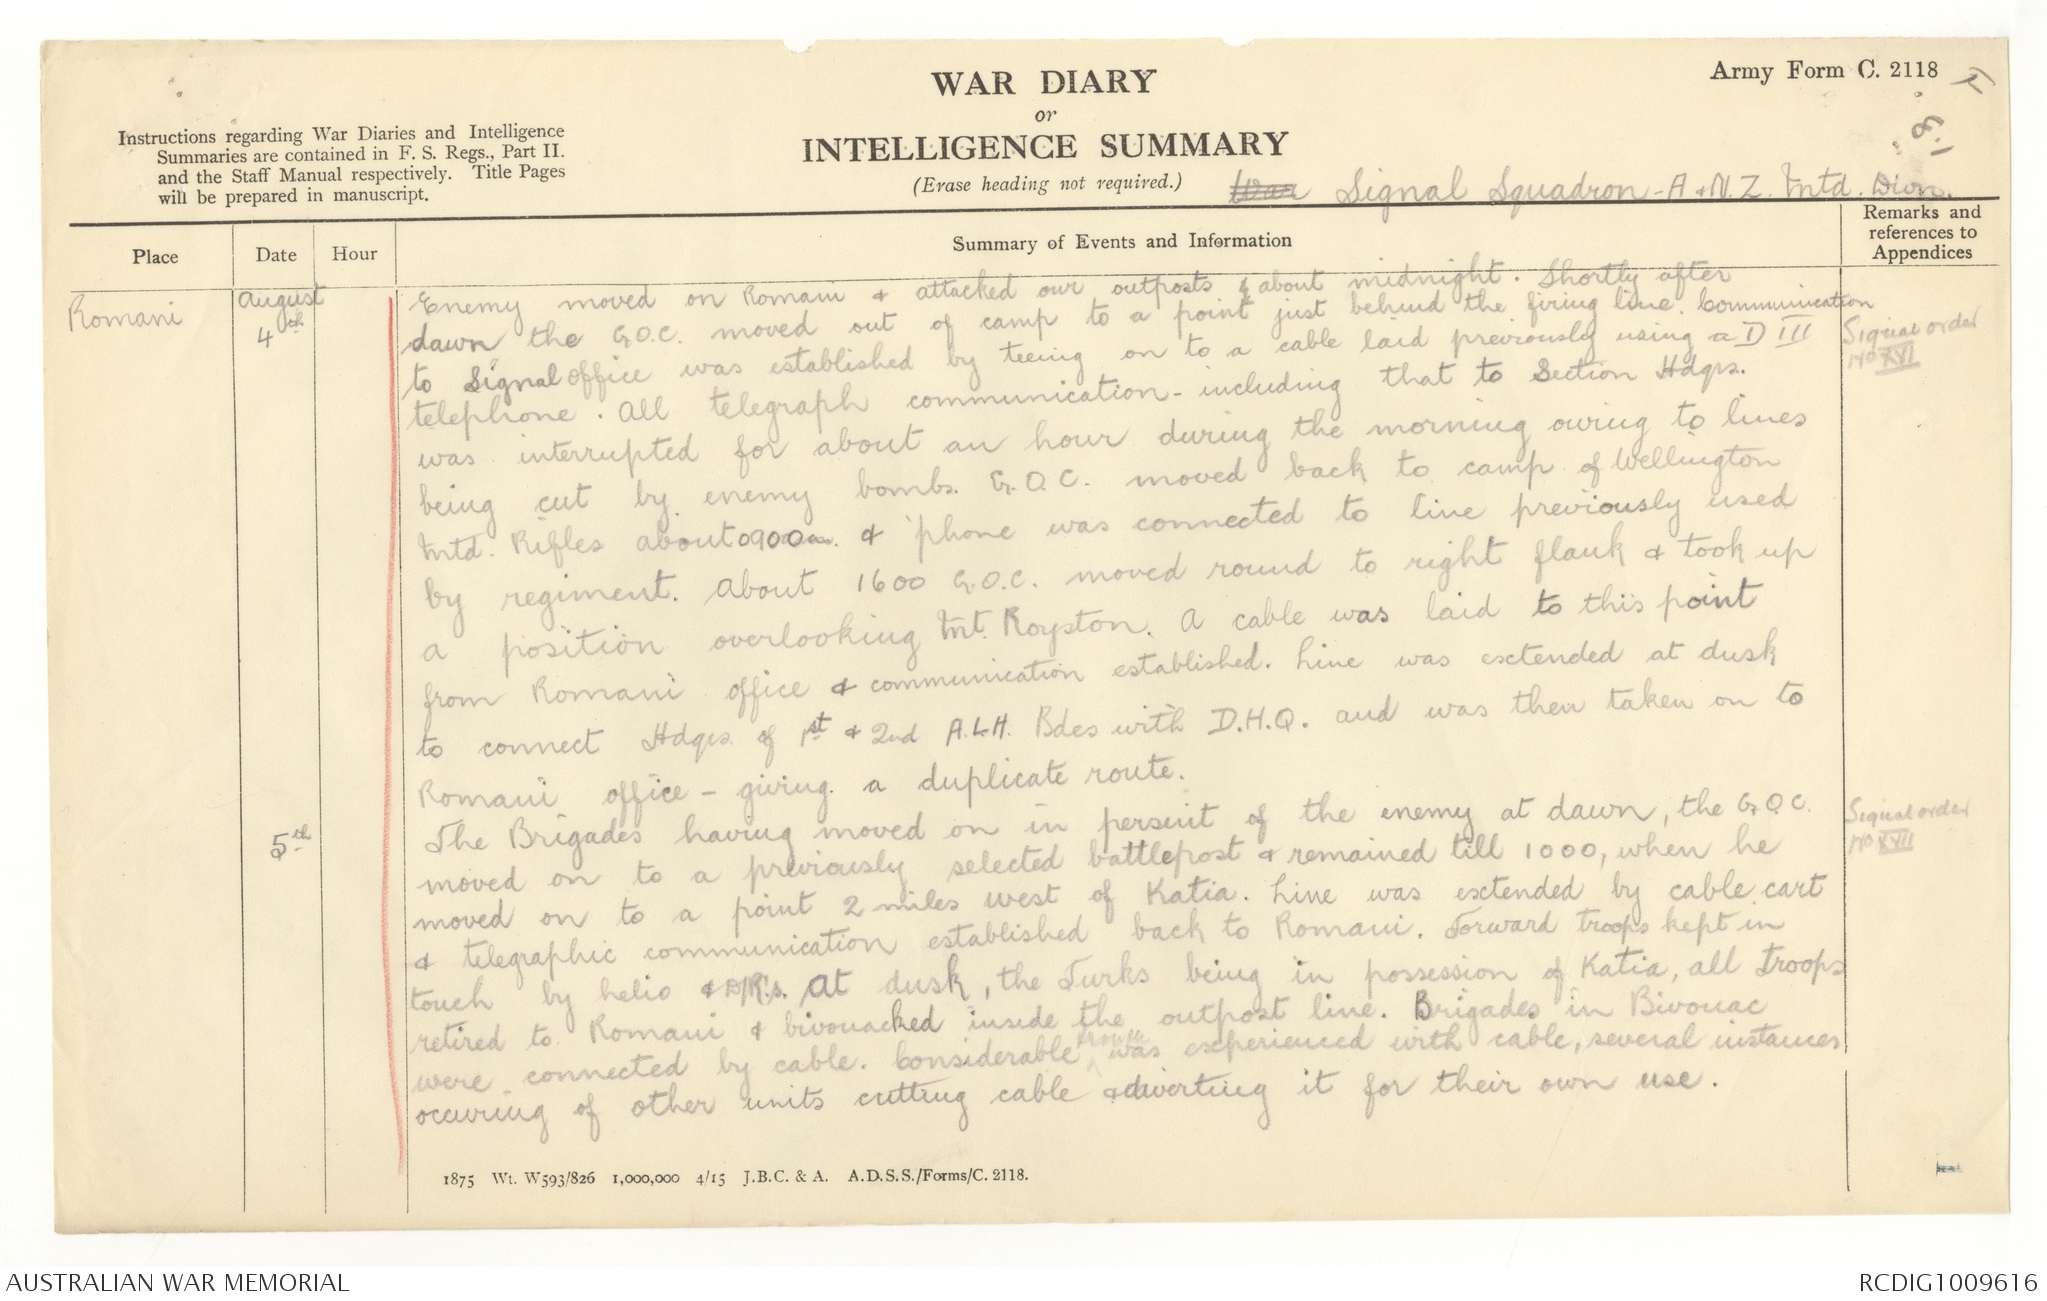 Army Form C. 2118
WAR DIARY
or
INTELLIGENCE SUMMARY
(Erase heading not required.)
Instructions regarding War Diaries and Intelligence
Summaries are contained in F. S. Regs., Part II.
and the Staff Manual respectively. Title Pages
will be prepared in manuscript.
War Signal Squadron - A & N.Z. Mtd. Divn.
Place
Date
Hour
Summary of Events and Information
Remarks and
references to
Appendices
Romani
August
4th
Enemy moved on Romani & attacked our outposts about midnight. Shortly after
dawn the G.O.C. moved out of camp to a point just behind the firing line. Communication
to Signal office was established by teeing on to a cable laid previously using a D III
telephone. All telegraph communication - including that to Section Hdqrs.
was interrupted for about an hour during the morning owing to lines
being cut by enemy bombs. G.O.C. moved back to camp of Wellington
Mtd. Rifles about 0900 & 'phone was connected to line previously used
by regiment. About 1600 G.O.C. moved round to right flank & took up
a position overlooking Mt. Royston. A cable was laid to this point
from Romani office & communication established. Line was extended at dusk
to connect Hdqrs. of 1st & 2nd A.L.H. Bdes with D.H.Q. and was then taken on to
Romani office - giving a duplicate route.
Signal order
No XVI
5th
The Brigades having moved on in persuit of the enemy at dawn, the G.O.C.
moved on to a previously selected battlepost & remained till 1000, when he
moved on to a point 2 miles west of Katia. Line was extended by cable cart
& telegraphic communication established back to Romani. Forward troops kept in
touch by helio & D/R's. At dusk, the Turks being in possession of Katia, all troops
retired to Romani & bivouacked inside the outpost line. Brigades in Bivouac
were connected by cable. Considerable trouble was experienced with cable, several instances
occuring of other units cutting cable & diverting it for their own use.
Signal order
No XVII
1875 Wt. W593/826 1,000,000 4/15 J.B.C. & A. A.D.S.S./Forms/C. 2118.
AUSTRALIAN WAR MEMORIAL
RCDIG1009616